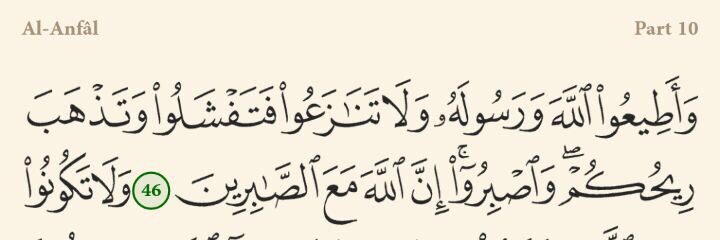 Al-Anfâl Part 10
وَأَطِيعُوا۟ ٱللَّهَ وَرَسُولَهُۥ وَلَا تَنَـٰزَعُوا۟ فَتَفْشَلُوا۟ وَتَذْهَبَ
رِيحُكُمْ ۖ وَٱصْبِرُوٓا۟ ۚ إِنَّ ٱللَّهَ مَعَ ٱلصَّـٰبِرِينَ 46 وَلَا تَكُونُوا۟